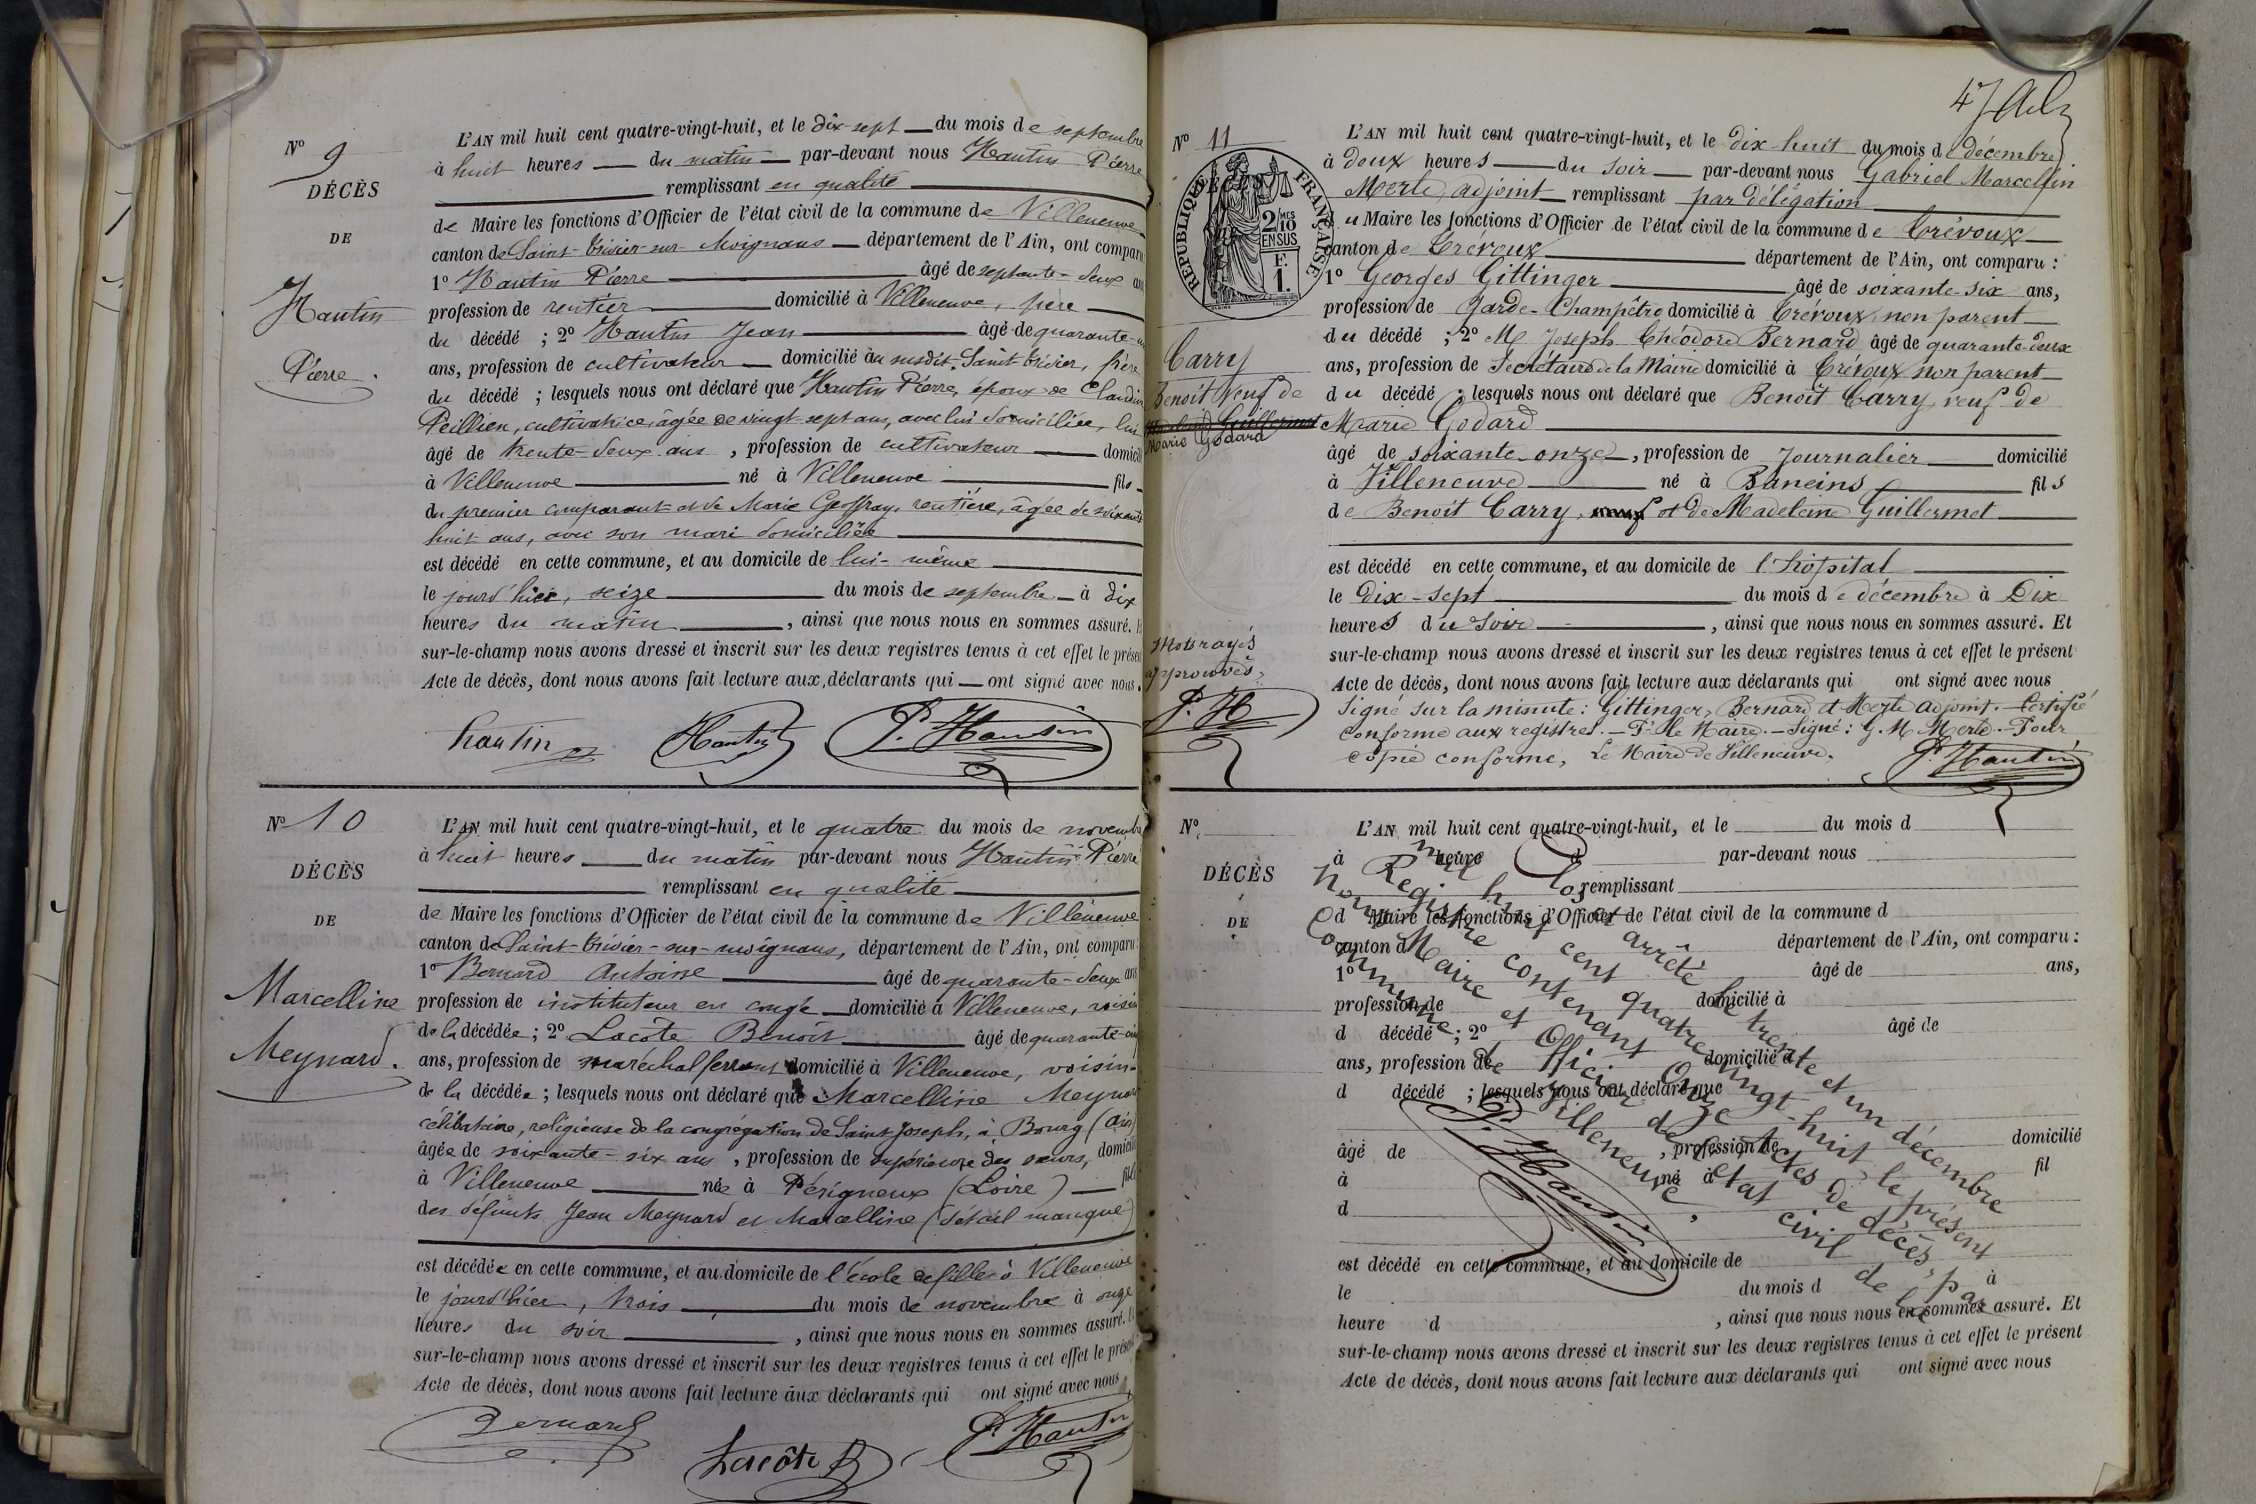 N° 9
DÉCÈS
DE
Hautin
Pierre.
L'AN mil huit cent quatre-vingt-huit, et le dix-sept du mois de septembre
à huit heures du matin par-devant nous Hautin Pierre
remplissant en qualité
de Maire les fonctions d'Officier de l'état civil de la commune de Villeneuve
canton de Saint-Trivier-sur-Moignans département de l'Ain, ont comparu
1° Hautin Pierre âgé de septante-deux ans
profession de rentier domicilié à Villeneuve, père
du décédé ; 2° Hautin Jean âgé de quarante-un
ans, profession de cultivateur domicilié au susdit Saint-Trivier, frère
du décédé ; lesquels nous ont déclaré que Hautin Pierre, époux de Claudine
Peillien, cultivatrice, âgée de vingt sept ans, avec lui domiciliée, lui
âgé de trente-deux ans, profession de cultivateur domicilié
à Villeneuve né à Villeneuve fils
du premier comparant et de Marie Geoffray, rentière, âgée de soixante
huit ans, avec son mari domiciliée
est décédé en cette commune, et au domicile de lui-même
le jourd'hier, seize du mois de septembre à dix
heures du matin, ainsi que nous nous en sommes assuré. Et
sur-le-champ nous avons dressé et inscrit sur les deux registres tenus à cet effet le présent
Acte de décès, dont nous avons fait lecture aux déclarants qui ont signé avec nous.
hautin Hautin P. Hautin
N° 10
DÉCÈS
DE
Marcelline
Meynard.
L'AN mil huit cent quatre-vingt-huit, et le quatre du mois de novembre
à huit heures du matin par-devant nous Hautin Pierre
remplissant en qualité
de Maire les fonctions d'Officier de l'état civil de la commune de Villeneuve
canton de Saint-Trivier-sur-moignans, département de l'Ain, ont comparu :
1° Bernard Antoine âgé de quarante-deux ans
profession de instituteur en congé domicilié à Villeneuve, voisin
de la décédée ; 2° Lacôte Benoit âgé de quarante-cinq
ans, profession de maréchal ferrant domicilié à Villeneuve, voisin
de la décédée ; lesquels nous ont déclaré que Marcelline Meynard
célibataire, religieuse de la congrégation de Saint Joseph, à Bourg (Ain)
âgée de soixante-six ans, profession de supérieure des sœurs, domiciliée
à Villeneuve née à Périgneux (Loire) fille
des défunts Jean Meynard et Marcelline (détail manque)
est décédée en cette commune, et au domicile de l'école de filles à Villeneuve
le jourd'hier, trois du mois de novembre à onze
heures du soir, ainsi que nous nous en sommes assuré. Et
sur-le-champ nous avons dressé et inscrit sur les deux registres tenus à cet effet le présent
Acte de décès, dont nous avons fait lecture aux déclarants qui ont signé avec nous
Bernard Lacôte B P. Hautin
47
N° 11
DÉCÈS
RÉPUBLIQUE FRANÇAISE
2/10 MES
EN SUS
F. 1.
Carry
Benoit Veuf de
Madeleine Guillermet
Marie Godard
Mots rayés
approuvés,
P. H
L'AN mil huit cent quatre-vingt-huit, et le dix-huit du mois de décembre
à deux heures du soir par-devant nous Gabriel Marcellin
Merle, adjoint remplissant par délégation
du Maire les fonctions d'Officier de l'état civil de la commune de Trévoux
canton de Trévoux département de l'Ain, ont comparu :
1° Georges Gittinger âgé de soixante-six ans,
profession de Garde-Champêtre domicilié à Trévoux, non parent
du décédé ; 2° M. Joseph Théodore Bernard âgé de quarante-deux
ans, profession de Secrétaire de la Mairie domicilié à Trévoux non parent
du décédé ; lesquels nous ont déclaré que Benoit Carry, veuf de
Marie Godard
âgé de soixante-onze, profession de Journalier domicilié
à Villeneuve né à Baneins fils
de Benoit Carry, veuf et de Madeleine Guillermet
est décédé en cette commune, et au domicile de l'hôpital
le Dix-sept du mois de décembre à Dix
heures du Soir, ainsi que nous nous en sommes assuré. Et
sur-le-champ nous avons dressé et inscrit sur les deux registres tenus à cet effet le présent
Acte de décès, dont nous avons fait lecture aux déclarants qui ont signé avec nous
Signé sur la minute : Gittinger, Bernard et Merle adjoint. – Certifié
conforme aux registres. – Pr le Maire. – Signé : G. M Merle. – Pour
copie conforme, Le Maire de Villeneuve.
P. Hautin
N°
DÉCÈS
DE
L'AN mil huit cent quatre-vingt-huit, et le du mois d
à heure d par-devant nous
remplissant
d Maire les fonctions d'Officier de l'état civil de la commune d
canton d département de l'Ain, ont comparu :
1° âgé de ans,
profession de domicilié à
d décédé ; 2° âgé de
ans, profession de domicilié à
d décédé ; lesquels nous ont déclaré que
âgé de , profession de domicilié
à né à fil
d
est décédé en cette commune, et au domicile de
le du mois d à
heure d , ainsi que nous nous en sommes assuré. Et
sur-le-champ nous avons dressé et inscrit sur les deux registres tenus à cet effet le présent
Acte de décès, dont nous avons fait lecture aux déclarants qui ont signé avec nous
Clos et arrêté le trente et un décembre
mil huit cent quatre-vingt-huit le présent
Registre contenant Onze actes de décès, par
nous Maire et Officier de l'état civil de la
Commune de Villeneuve,
P. Hautin